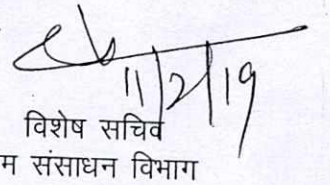 11/2/19
विशेष सचिव
म संसाधन विभाग